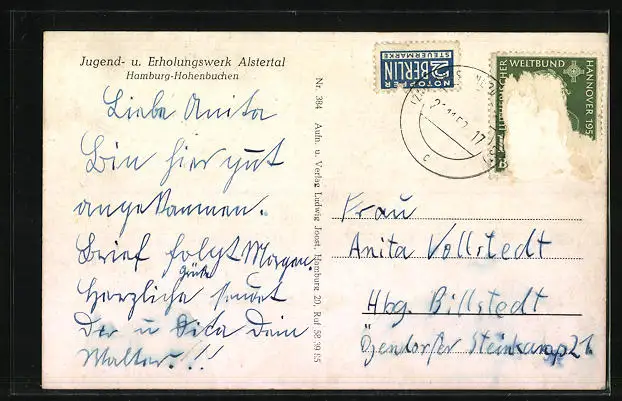 Jugend- u. Erholungswerk Alstertal
Hamburg-Hohenbuchen
Liebe Anita
Bin hier gut
angekommen.
Brief folgt Morgen.
Grüße
Herzliche sendet
Dir u Dein
Walter.!!!
Nr. 384 Aufn. u. Verlag Ludwig Joost, Hamburg 20, Ruf 58 39 65
NOTOPFER
2 BERLIN
STEUERMARKE
WELTBUND
HANNOVER 195
17
c
Frau
Anita Vollstedt
Hbg. Billstedt
Öjendorfer Steinkamp 21